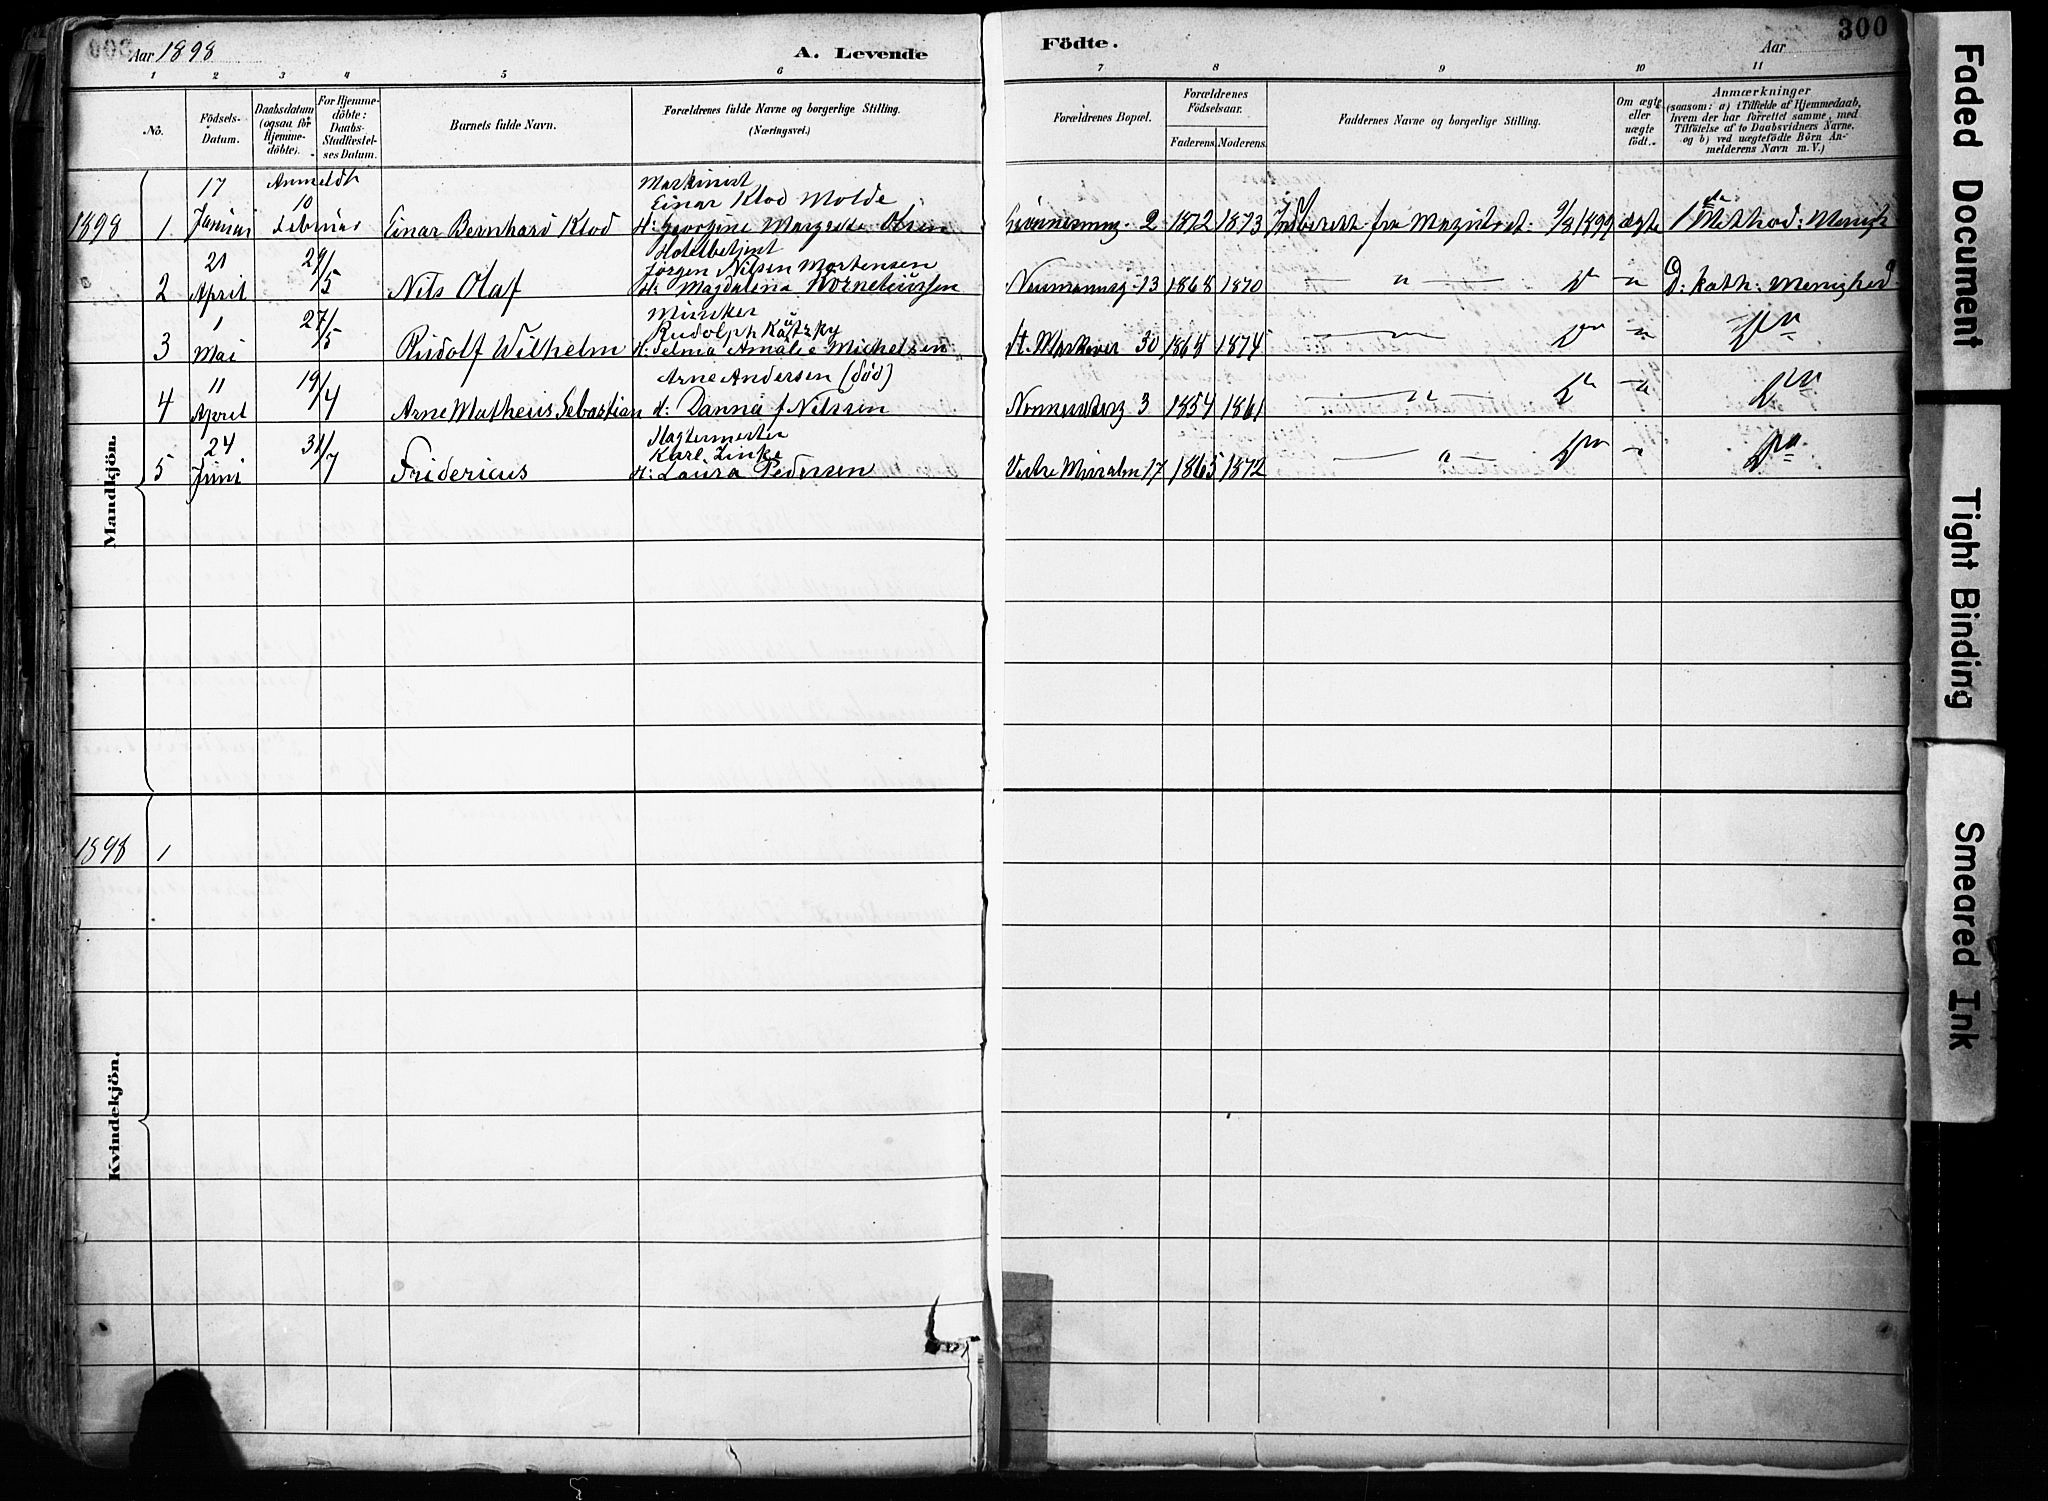 Aar 1898
A. Levende
Födte.
Aar
300
1 2 3 4 5 6 7 8 9 10 11
No.
Födsels-
Datum.
Daabsdatum
(ogsaa for
Hjemme-
döbte).
For Hjemme-
döbte:
Daabs-
Stadfæstel-
ses Datum.
Barnets fulde Navn.
Forældrenes fulde Navne og borgerlige Stilling.
(Næringsvei.)
Forældrenes Bopæl.
Forældrenes
Födselsaar.
Faderens. Moderens.
Faddernes Navne og borgerlige Stilling.
Om ægte
eller
uægte
födt.
Anmærkninger
(saasom: a) i Tilfælde af Hjemmedaab,
hvem der har forrettet samme, med
Tilföielse af to Daabsvidners Navne,
og b) ved uægtefödte Börn An-
melderens Navn m. V.)
Mandkjön.
17 Anmeldt Maskinist
10 Einar Klod Molde
1898 1 Januar Februar Einar Bernhard Klod H: Georgine Margrethe Olsen 2 1872 1873 Indberett fra Magistrat 9/3 1899 ægte 1ste Method: Menigh
21 29/5 Hotelbetjent
Jørgen Nilsen Mortensen
2 April Nils Olaf H: Magdalena Korneliussen Neumannsg 13 1868 1870 — " — D " D: kath: Menighed
1 27/5 Musiker
Rudolph Kautzky
3 Mai Rudolf Wilhelm H: Selma Amalie Michelsen St. Markevei 30 1868 1874 — " — Do " Do
11 19/4 Arne Andersen (død)
4 April Arne Matheus Sebastian H: Danna f Nilssen Nonneseterg 3 1854 1861 — " — Do " Do
24 31/7 Slagtermester
Karl Zinke
5 Juni Fridericus H: Laura Pedersen Vestre Muralm 17 1865 1872 — " — Do " Do
Kvindekjön.
1898 1
Faded Document
Tight Binding
Smeared Ink